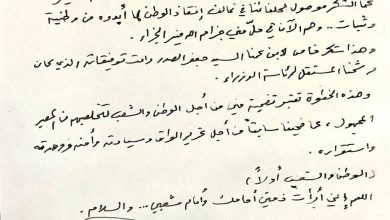 كما الشكر موصول لحلفائنا في تحالف إنقاذ الوطن لما أبدوه من وطنية
وثبات .. وهم الآن في حل مني جزاهم الله خير الجزاء.
وهذا شكر خاص لابن عمنا السيد جعفر الصدر دامت توفيقاته الذي كان
مرشحنا المستقل لرئاسة الوزراء.
وهذه الخطوة تعتبر تضحية مني من أجل الوطن والشعب لتخليصهم من المصير
المجهول، كما ضحينا سابقاً من أجل تحرير العراق وسيادته وأمنه ووحدته
واستقراره.
(الوطن والشعب أولاً)
اللهم إني أبرأت ذمتي أمامك وأمام شعبي ... والسلام.